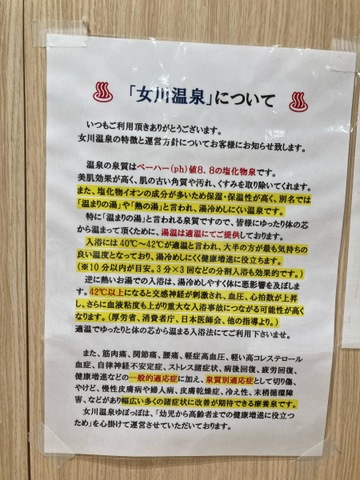 「女川温泉」について
いつもご利用頂きありがとうございます。
女川温泉の特徴と運営方針についてお客様にお知らせ致します。
温泉の泉質はペーハー(ph)値8.8の塩化物泉です。
美肌効果が高く、肌の古い角質や汚れ、くすみを取り除いてくれます。
また、塩化物イオンの成分が多いため保湿・保温性が高く、別名では
「温まりの湯」や「熱の湯」と言われ、湯冷めしにくい温泉です。
特に「温まりの湯」と言われる泉質ですので、皆様にゆったり体の芯
から温まって頂ために、湯温は適温にてご提供しております。
入浴には40℃～42℃が適温と言われ、大半の方が最も気持ちの
良い温度となっており、湯冷めしにくく健康増進に役立ちます。
(※10分以内が目安。3分×3回などの分割入浴も効果的です。)
逆に熱いお湯での入浴は、湯冷めしやすく体に悪影響を及ぼしま
す。42℃以上になると交感神経が刺激され、血圧、心拍数が上昇
し、さらに血液粘度も上がり重大な入浴事故につながる可能性が高く
なります。(厚労省、消費者庁、日本医師会、他の指導より。)
適温でゆったりと体の芯から温まる入浴法にてご利用下さいませ。
また、筋肉痛、関節痛、腰痛、軽症高血圧、軽い高コレステロール
血症、自律神経不安定症、ストレス諸症状、病後回復、疲労回復、
健康増進などの一般的適応症に加え、泉質別適応症として切り傷、
やけど、慢性皮膚病や婦人病、皮膚乾燥症、冷え性、末梢循環障
害、などがあり幅広い多くの諸症状に改善が期待できる療養泉です。
女川温泉ゆぽっぽは、「幼児から高齢者までの健康増進に役立つ
ため」を心掛けて運営させていただいております。